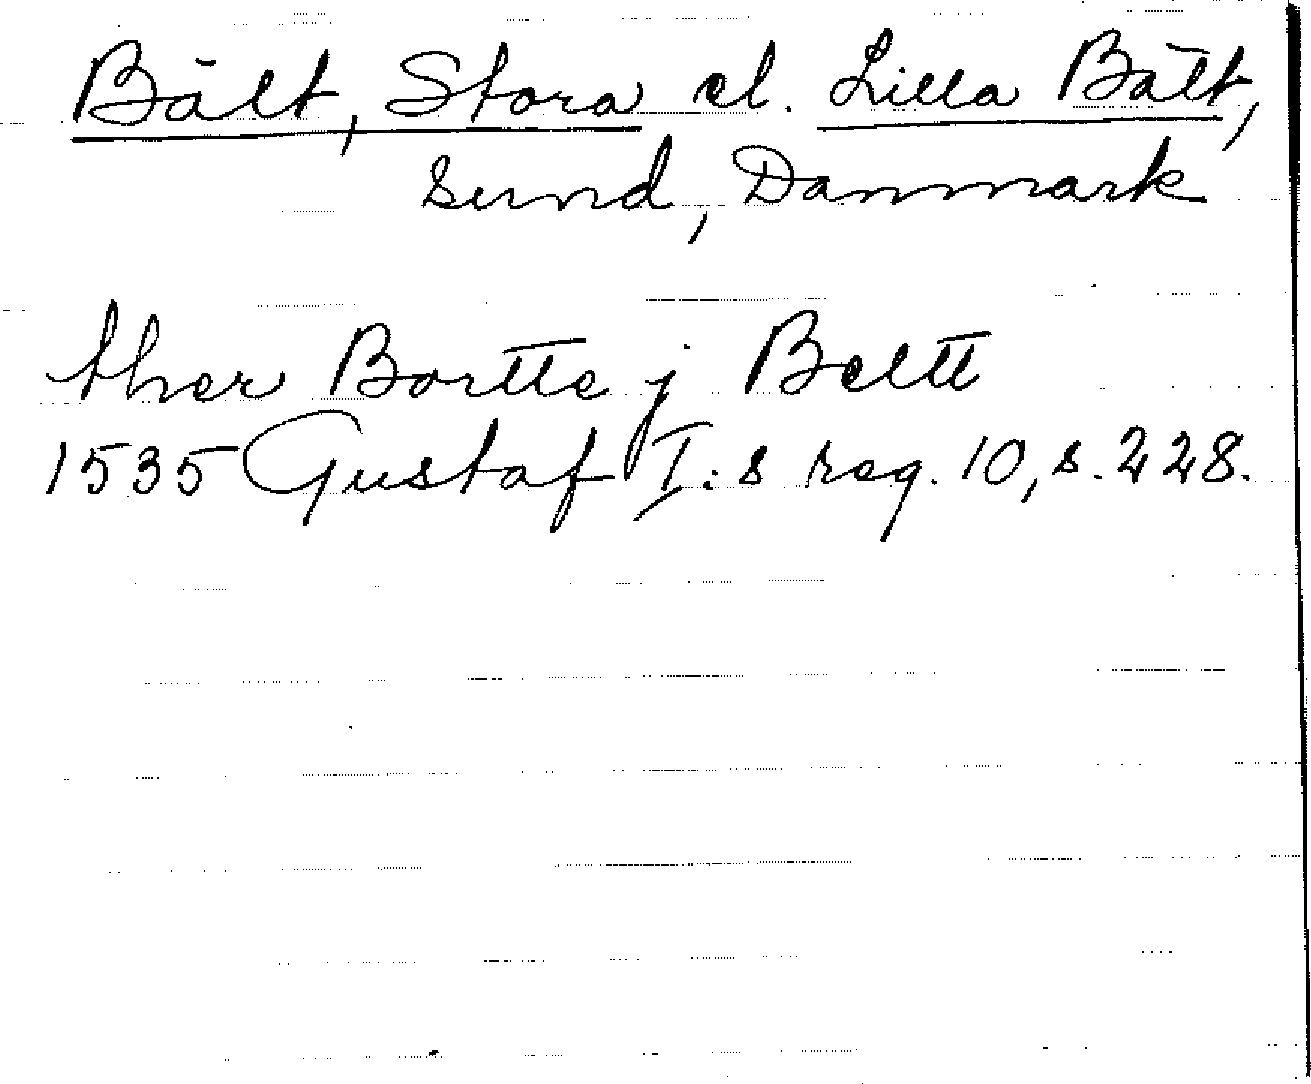 Bält, Stora el. Lilla Bält,
sund, Danmark
ther Bortte j Beltt
1535 Gustaf I:s reg. 10, s. 228.